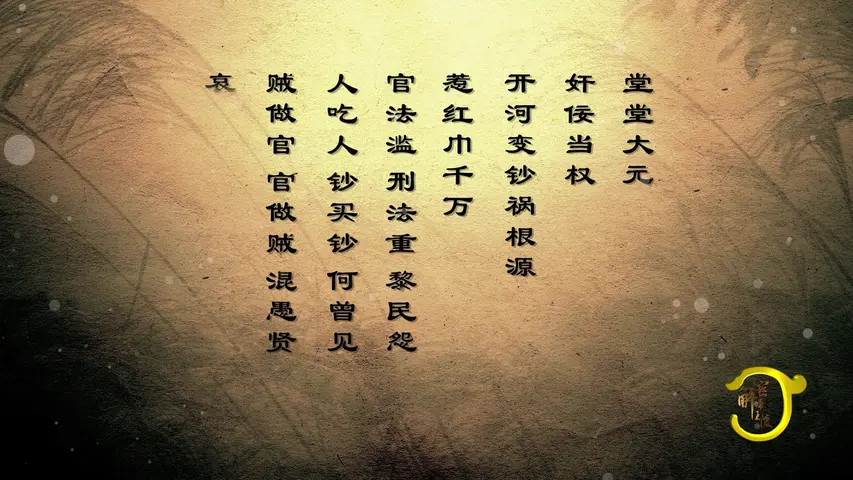 堂堂大元
奸佞当权
开河变钞祸根源
惹红巾千万
官法滥 刑法重 黎民怨
人吃人 钞买钞 何曾见
贼做官 官做贼 混愚贤
哀